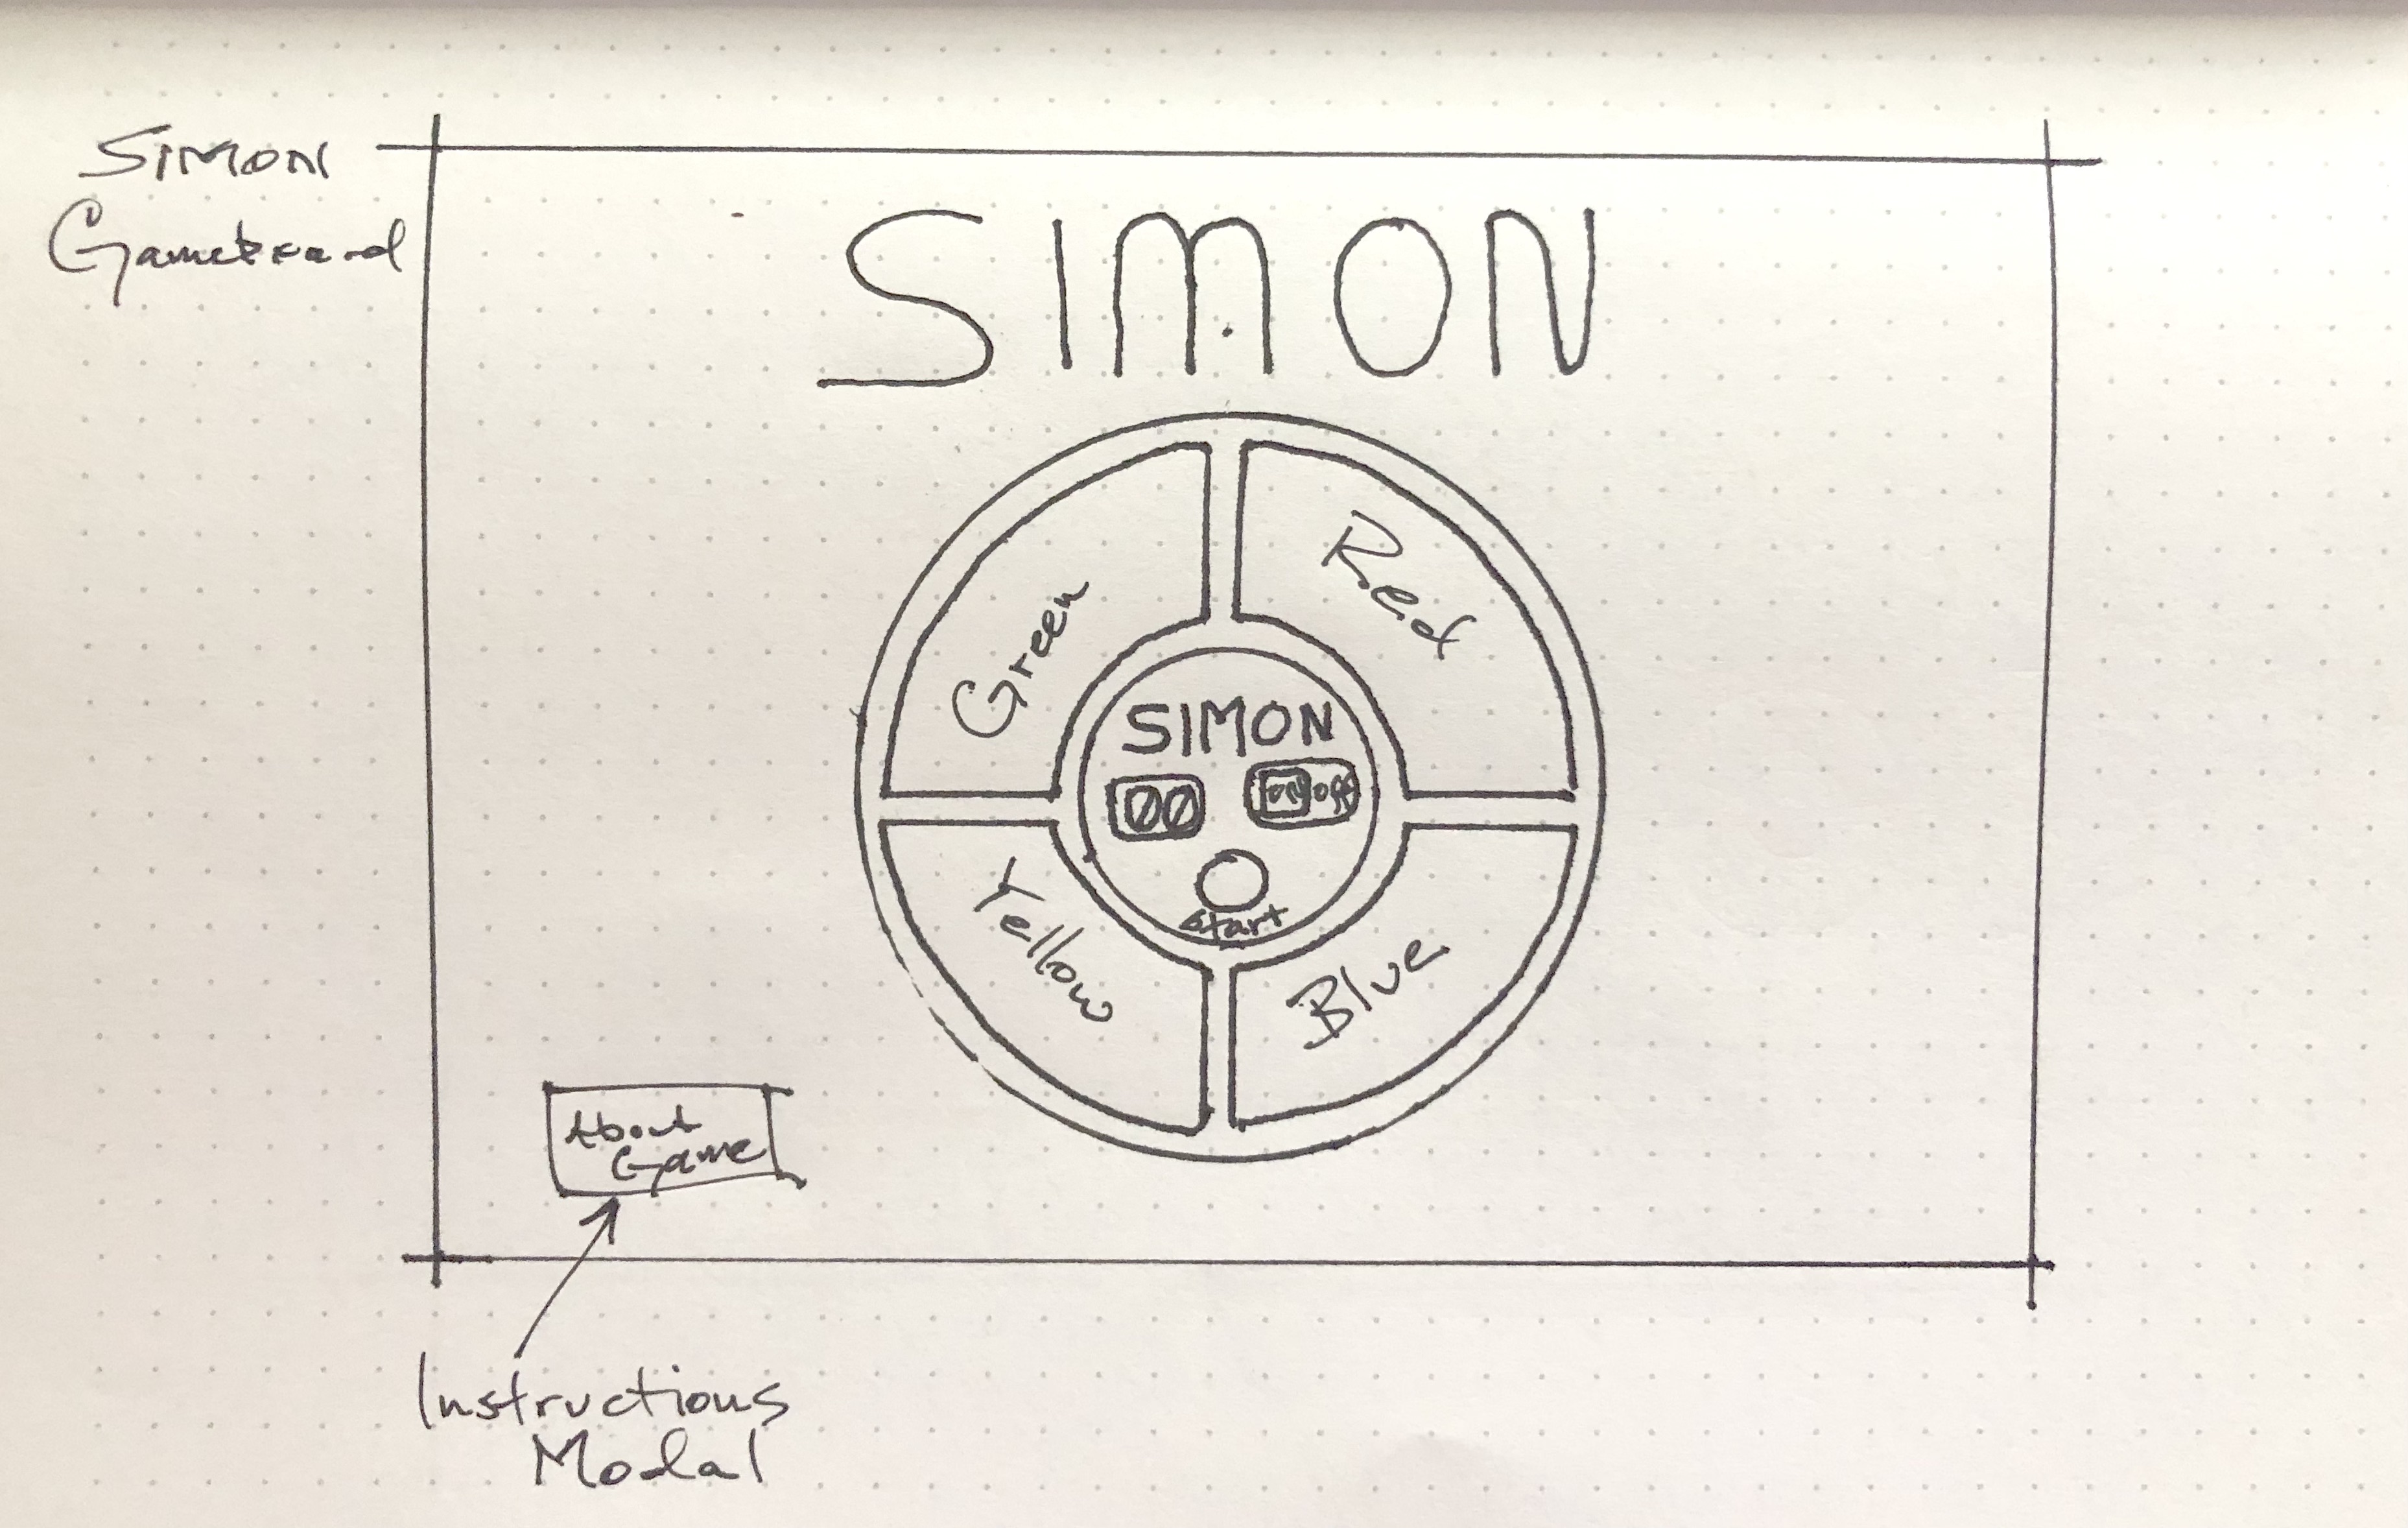 SIMON
Gameboard
SIMON
Green
Red
SIMON
00
ON OFF
Start
Yellow
Blue
About
Game
Instructions
Modal